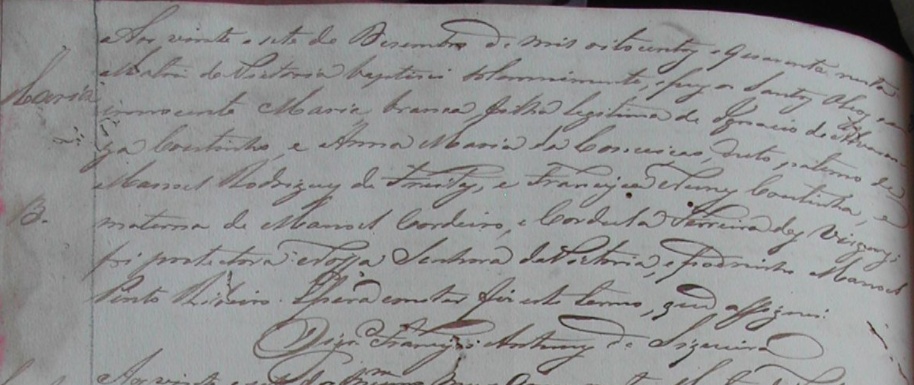 Aos vinte e sete de Desembro de mil oito centos e quarenta nesta
Matriz de Victoria baptisei solemnimente, e puz os Santos Oleos
Maria
innocente Maria, branca, filha legitima de Ignacio de
ga Coutinho, e Anna Maria da Conceicao, neto paterno de
Manoel Rodrigues de Freitas, e Francisca Nunes Coutinha, e
B.
materna de Manoel Cordeiro, e Cordula Ferreira das Virgens
foi protectora Nossa Senhora da Victoria, e padrinho Manoel
Pinto Ribeiro. E para constar fiz este termo, que assignei.
Francisco Antunes de Siqueira
Aos vinte e sete de